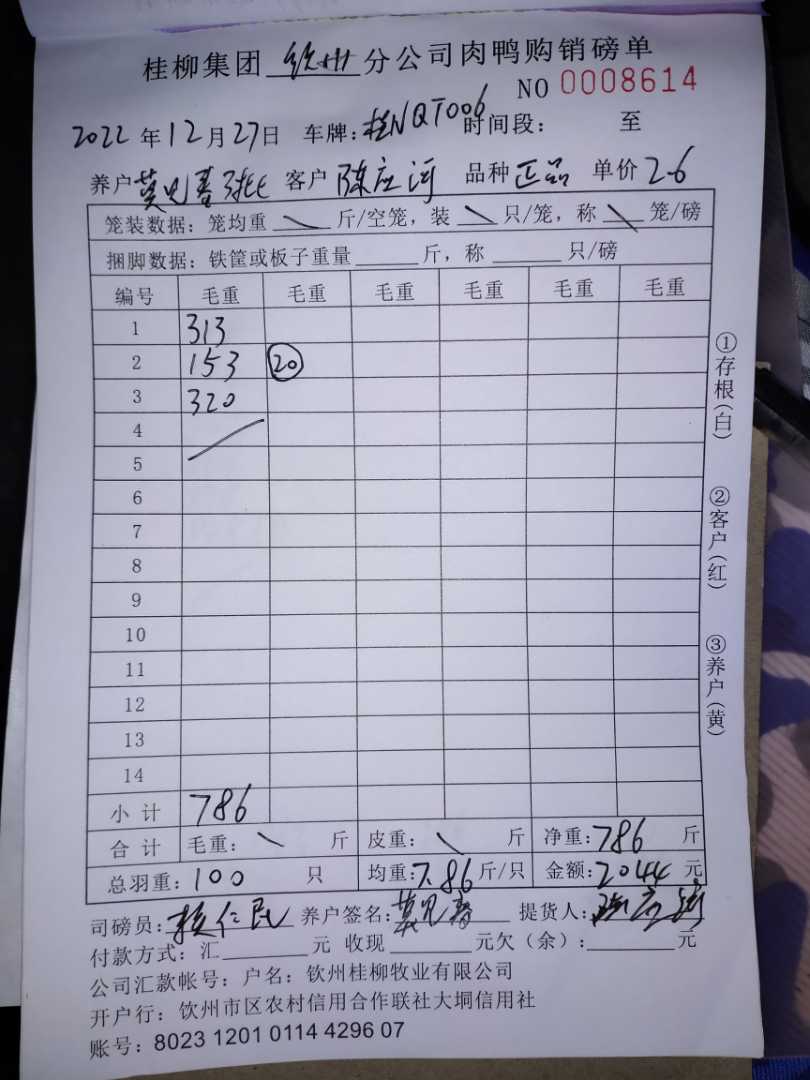 桂柳集团 钦州 分公司肉鸭购销磅单
NO 0008614
2022 年 12 月 27 日 车牌: 桂NQT006 时间段: 至
养户 莫见春 客户 陈应河 品种 正品 单价 2.6
笼装数据: 笼均重 \ 斤/空笼, 装 \ 只/笼, 称 \ 笼/磅
捆脚数据: 铁筐或板子重量______斤, 称______只/磅
编号 毛重 毛重 毛重 毛重 毛重 毛重
1 313
2 153 20
3 320
4
5
6
7
8
9
10
11
12
13
14
小计 786
合计 毛重: \ 斤 皮重: \ 斤 净重: 786 斤
总羽重: 100 只 均重: 7.86 斤/只 金额: 2044 元
司磅员: 仁民 养户签名: 莫见春 提货人: 陈应河
付款方式: 汇______元 收现______元欠(余):______元
公司汇款帐号: 户名: 钦州桂柳牧业有限公司
开户行: 钦州市区农村信用合作联社大垌信用社
账号: 8023 1201 0114 4296 07
①存根(白)
②客户(红)
③养户(黄)